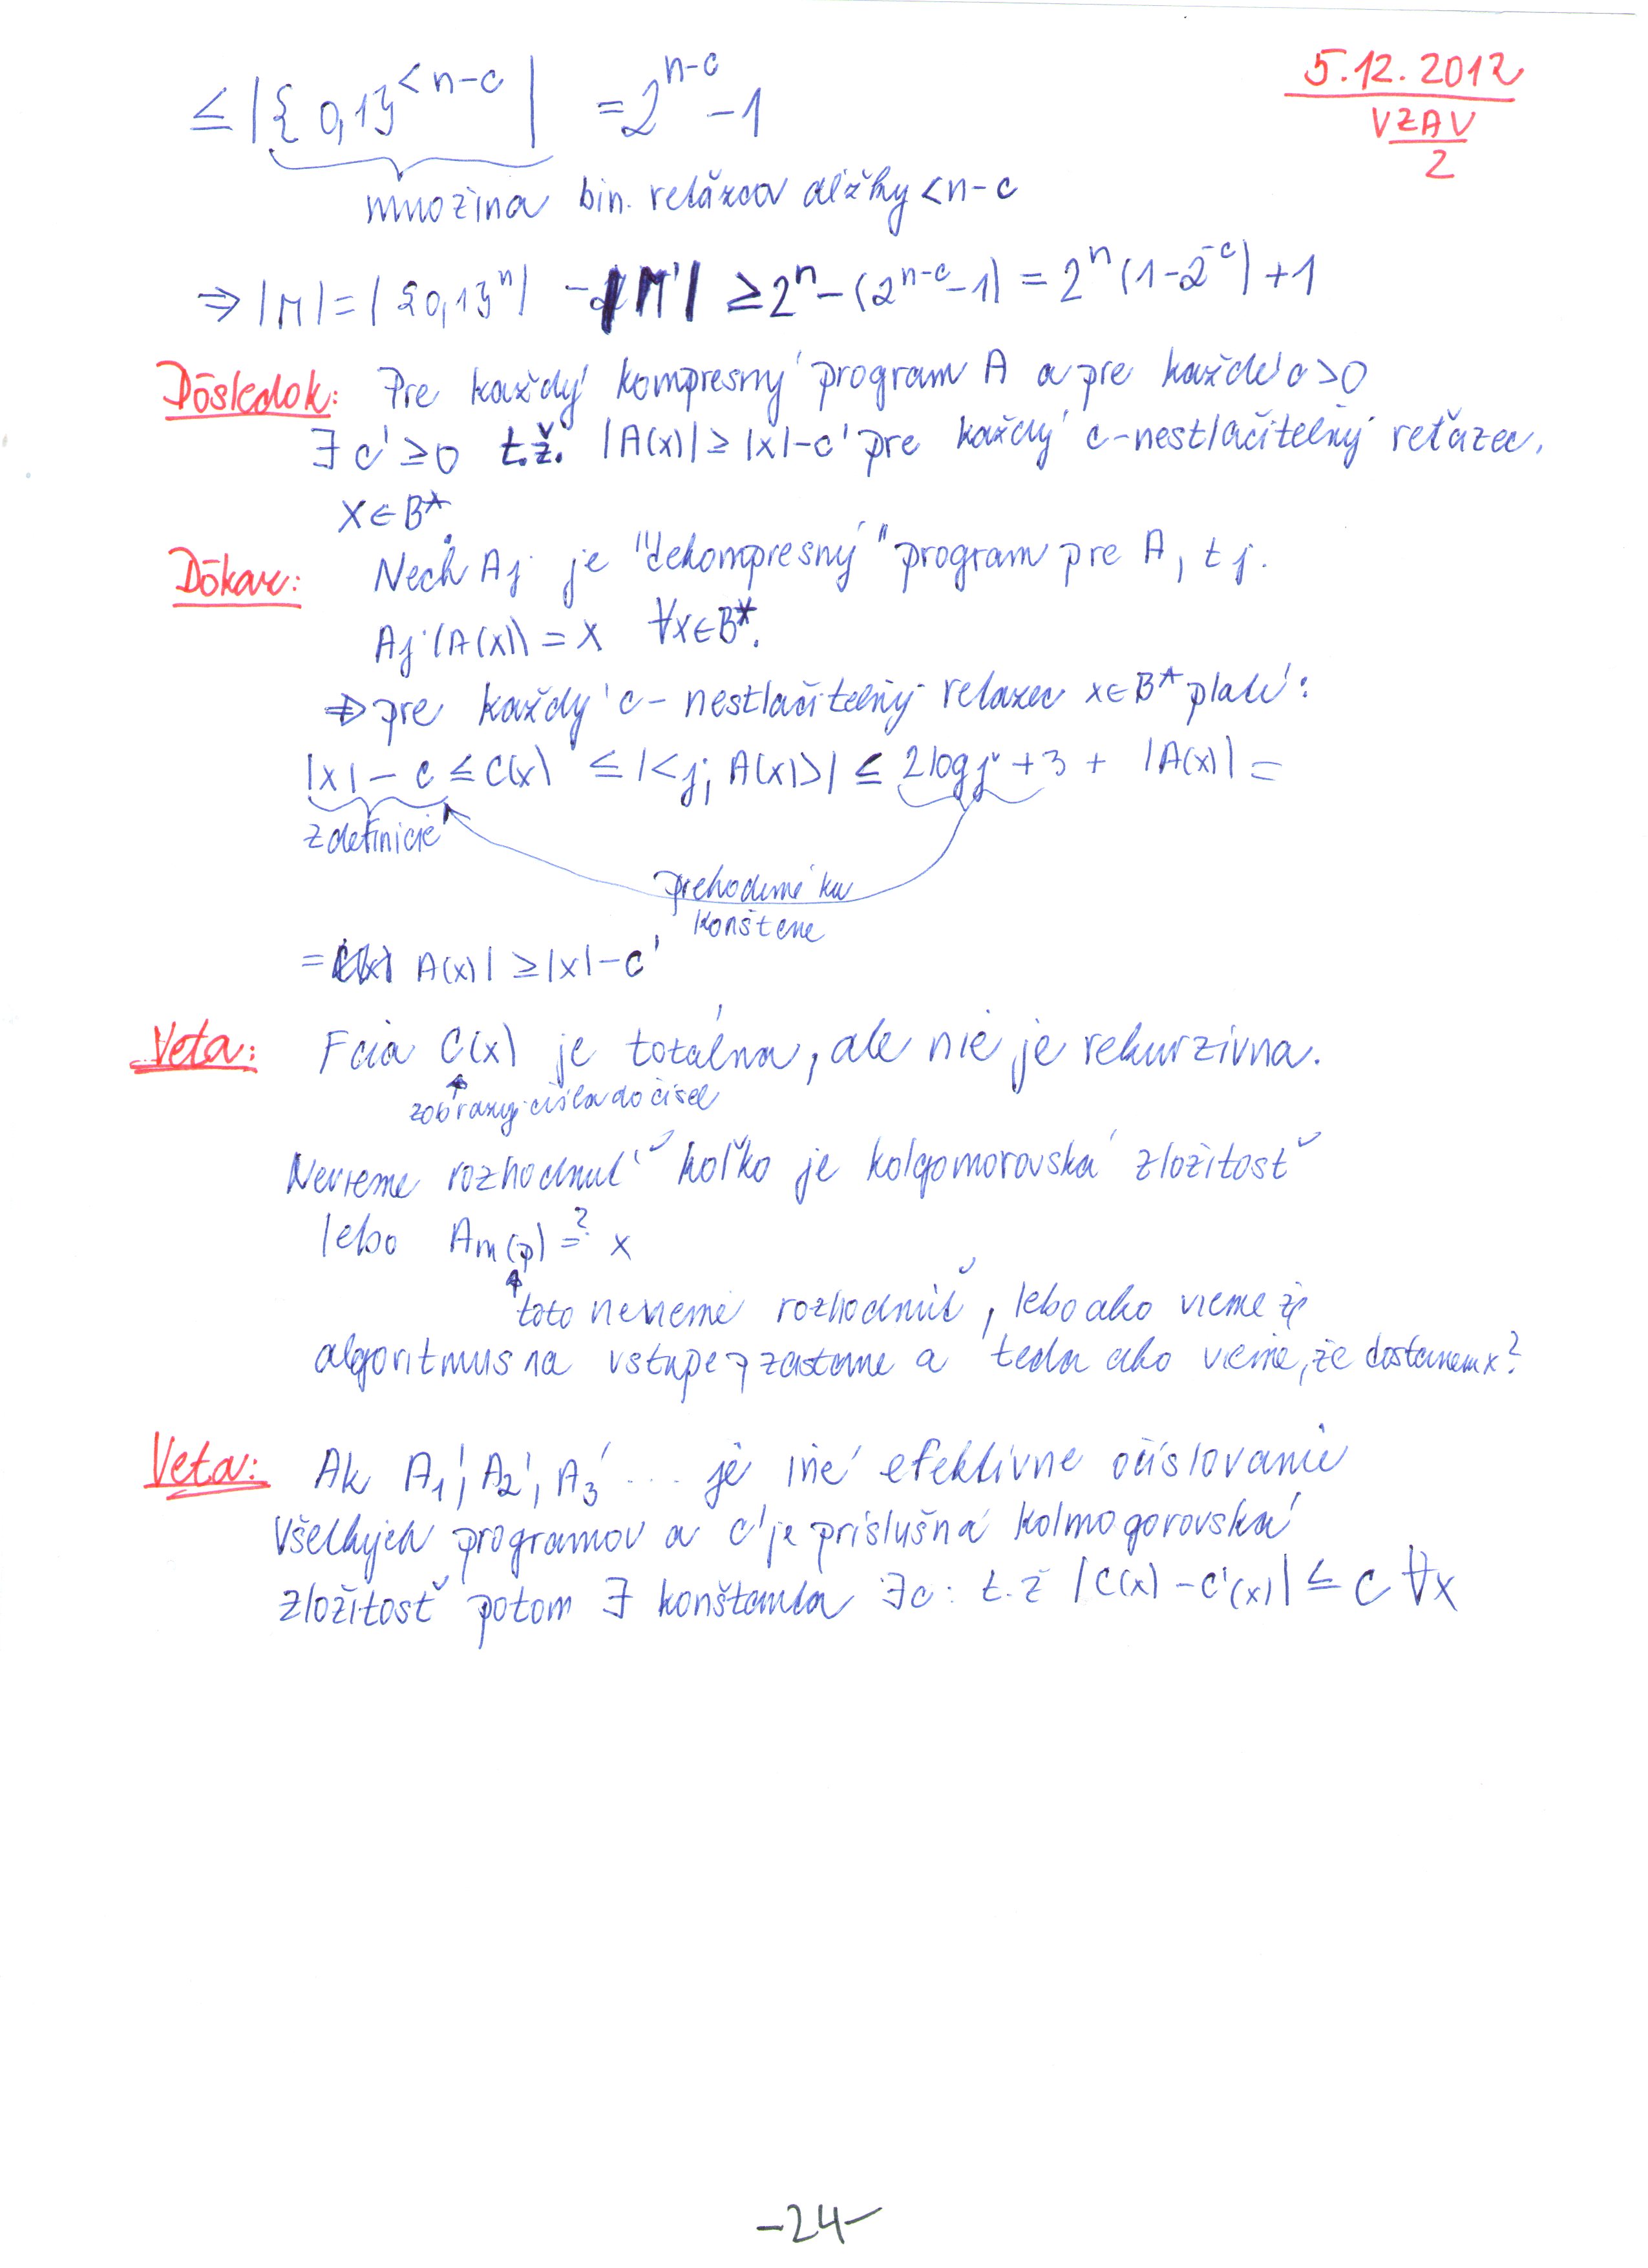 5.12.2012
VZAV
2
≤ |{0,1}^{<n-c}| = 2^{n-c} - 1
množina bin. reťazcov dĺžky < n-c
⇒ |M| = |{0,1}^n| - |M'| ≥ 2^n - (2^{n-c} - 1) = 2^n (1 - 2^{-c}) + 1
Dôsledok: Pre každý kompresný program A a pre každé c > 0
∃ c' ≥ 0 t.ž. |A(x)| ≥ |x| - c' pre každý c-nestlačiteľný reťazec.
x ∈ B*.
Dôkaz: Nech Aj je "dekompresný" program pre A, t j.
Aj (A(x)) = x ∀x ∈ B*.
⇒ pre každý c - nestlačiteľný retazec x ∈ B* platí:
|x| - c ≤ C(x) ≤ |<j; A(x)>| ≤ 2 log j + 3 + |A(x)| =
z definície
prehodíme ku
konštane
= A(x)| ≥ |x| - c'
Veta: Fcia C(x) je totálna, ale nie je rekurzívna.
zobrazuj. čísla do čísel
Nevieme rozhodnuť koľko je kolgomorovská zložitosť
lebo Am(p) =? x
toto nevieme rozhodnúť, lebo ako vieme že
algoritmus na vstupe p zastane a teda ako vieme, že dostanem x?
Veta: Ak A1', A2', A3' ... je iné efektívne očíslovanie
všetkých programov a C' je príslušná kolmogorovská
zložitosť potom ∃ konštanta ∃c: t.ž |C(x) - C'(x)| ≤ c ∀x
-24-